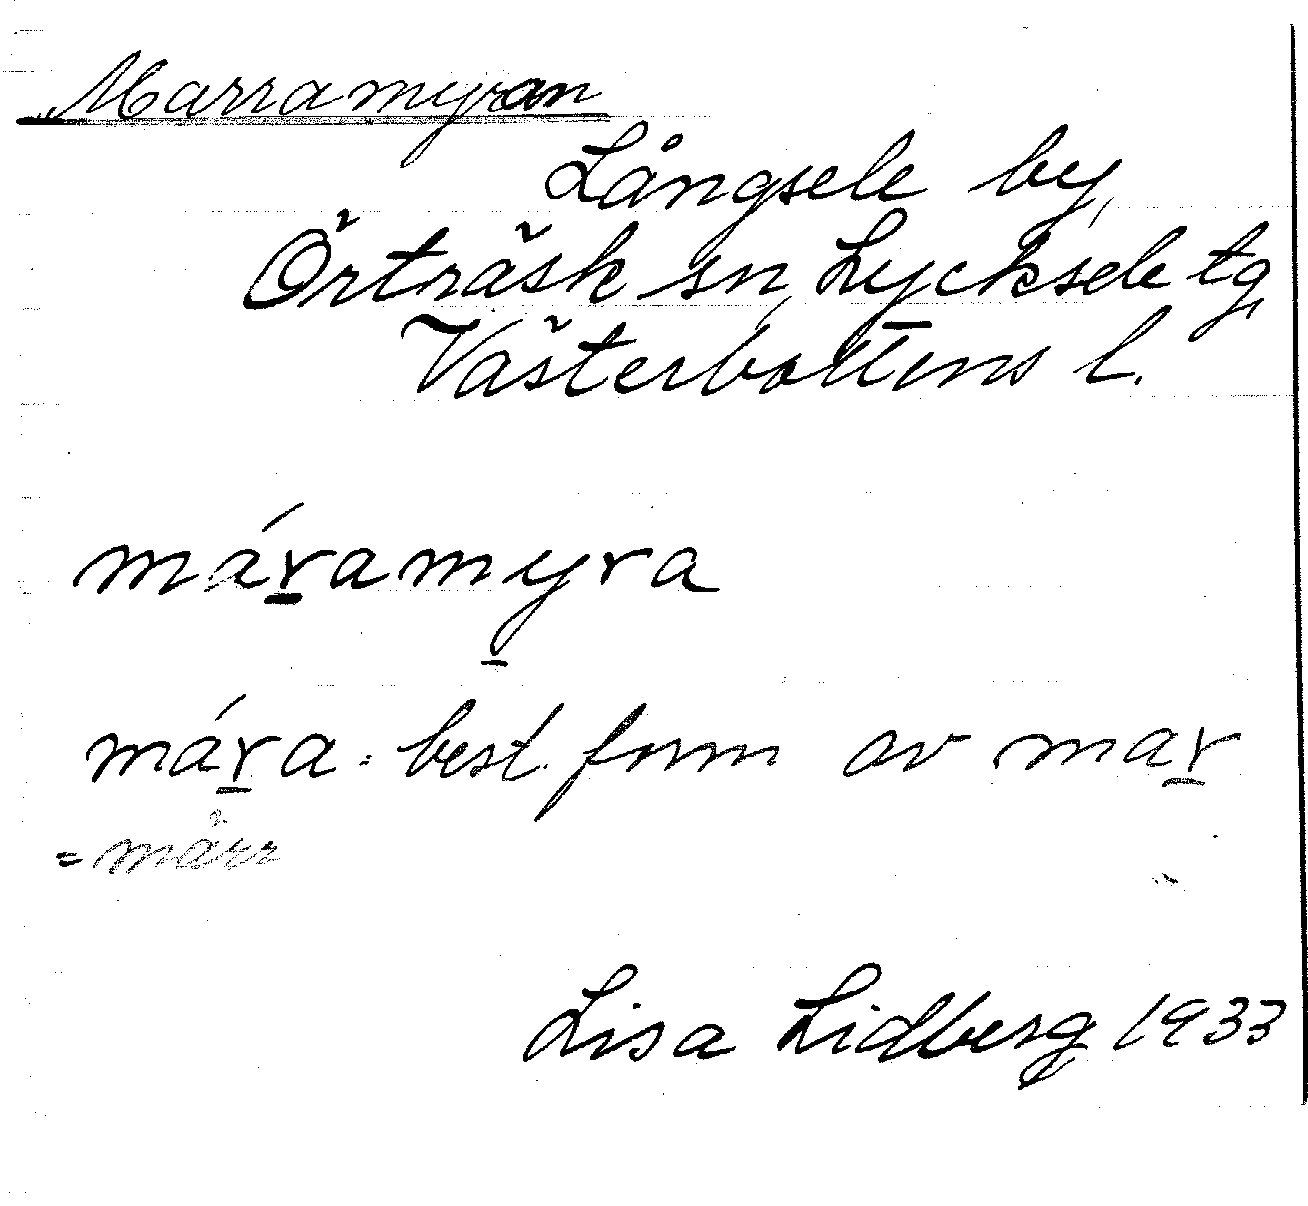 Marramyran
Långsele by,
Örträsk sn, Lycksele tg,
Västerbottens l.
már̲amy̲ra
már̲a = best. form av mar̲
= märr
Lisa Lidberg 1933